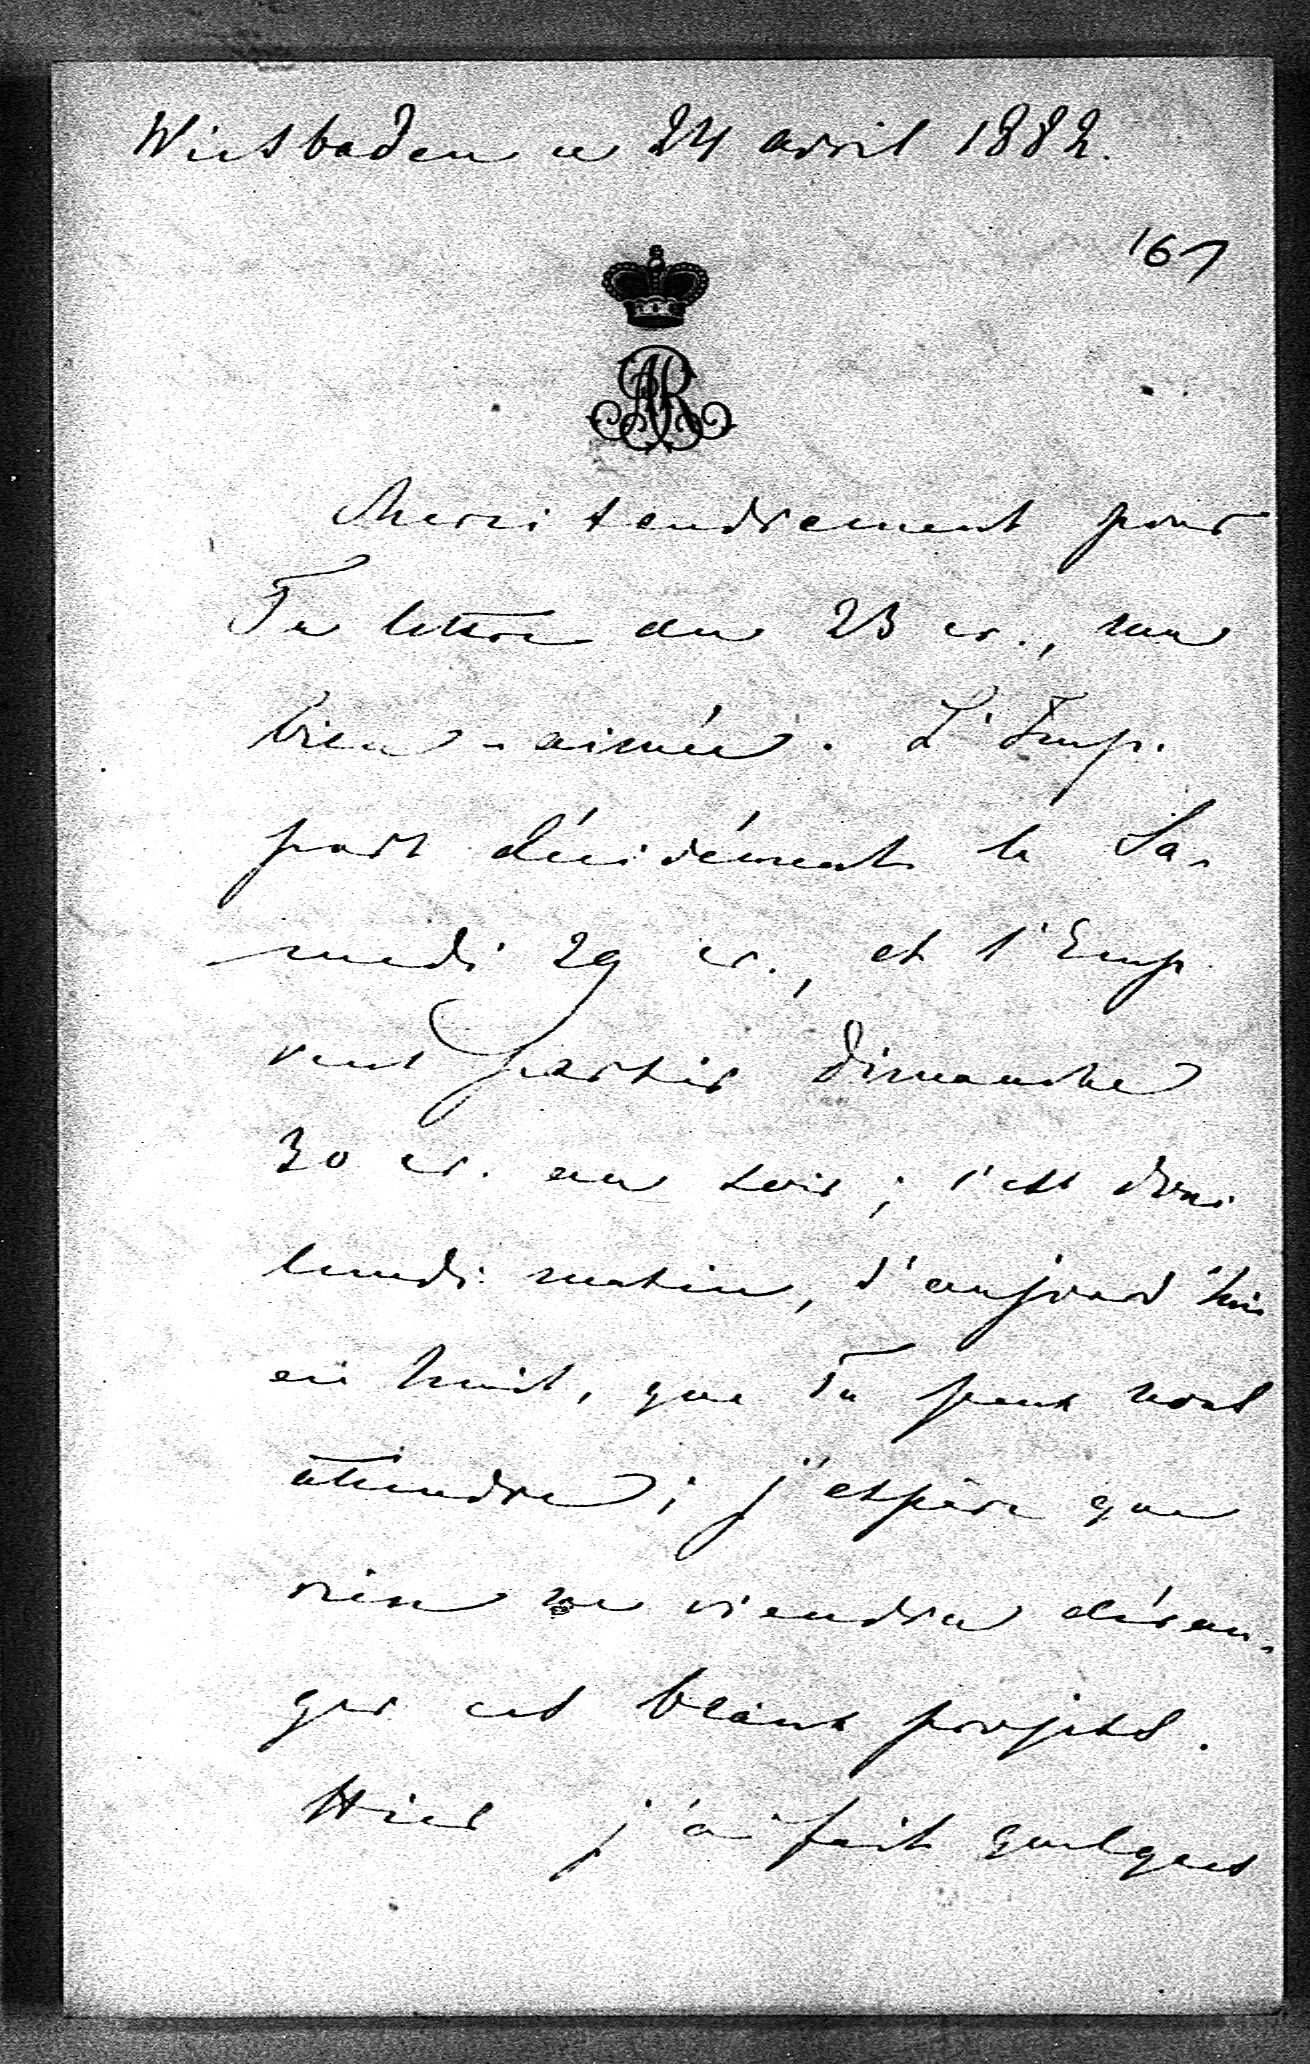 Wiesbaden ce 24 avril 1882.
167
AR
Merci tendrement pour
Ta lettre du 23 cr., ma
bien-aimée. L'Imp.
part décidément le Sa-
medi 29 cr., et l'Emp.
veut partir Dimanche
30 cr. au soir; c'est donc
lundi matin, d'aujourd'hui
en huit, que Tu peux nous
attendre; j'espère que
rien ne viendra déran-
ger ces beaux projets.
Hier j'ai fait quelques